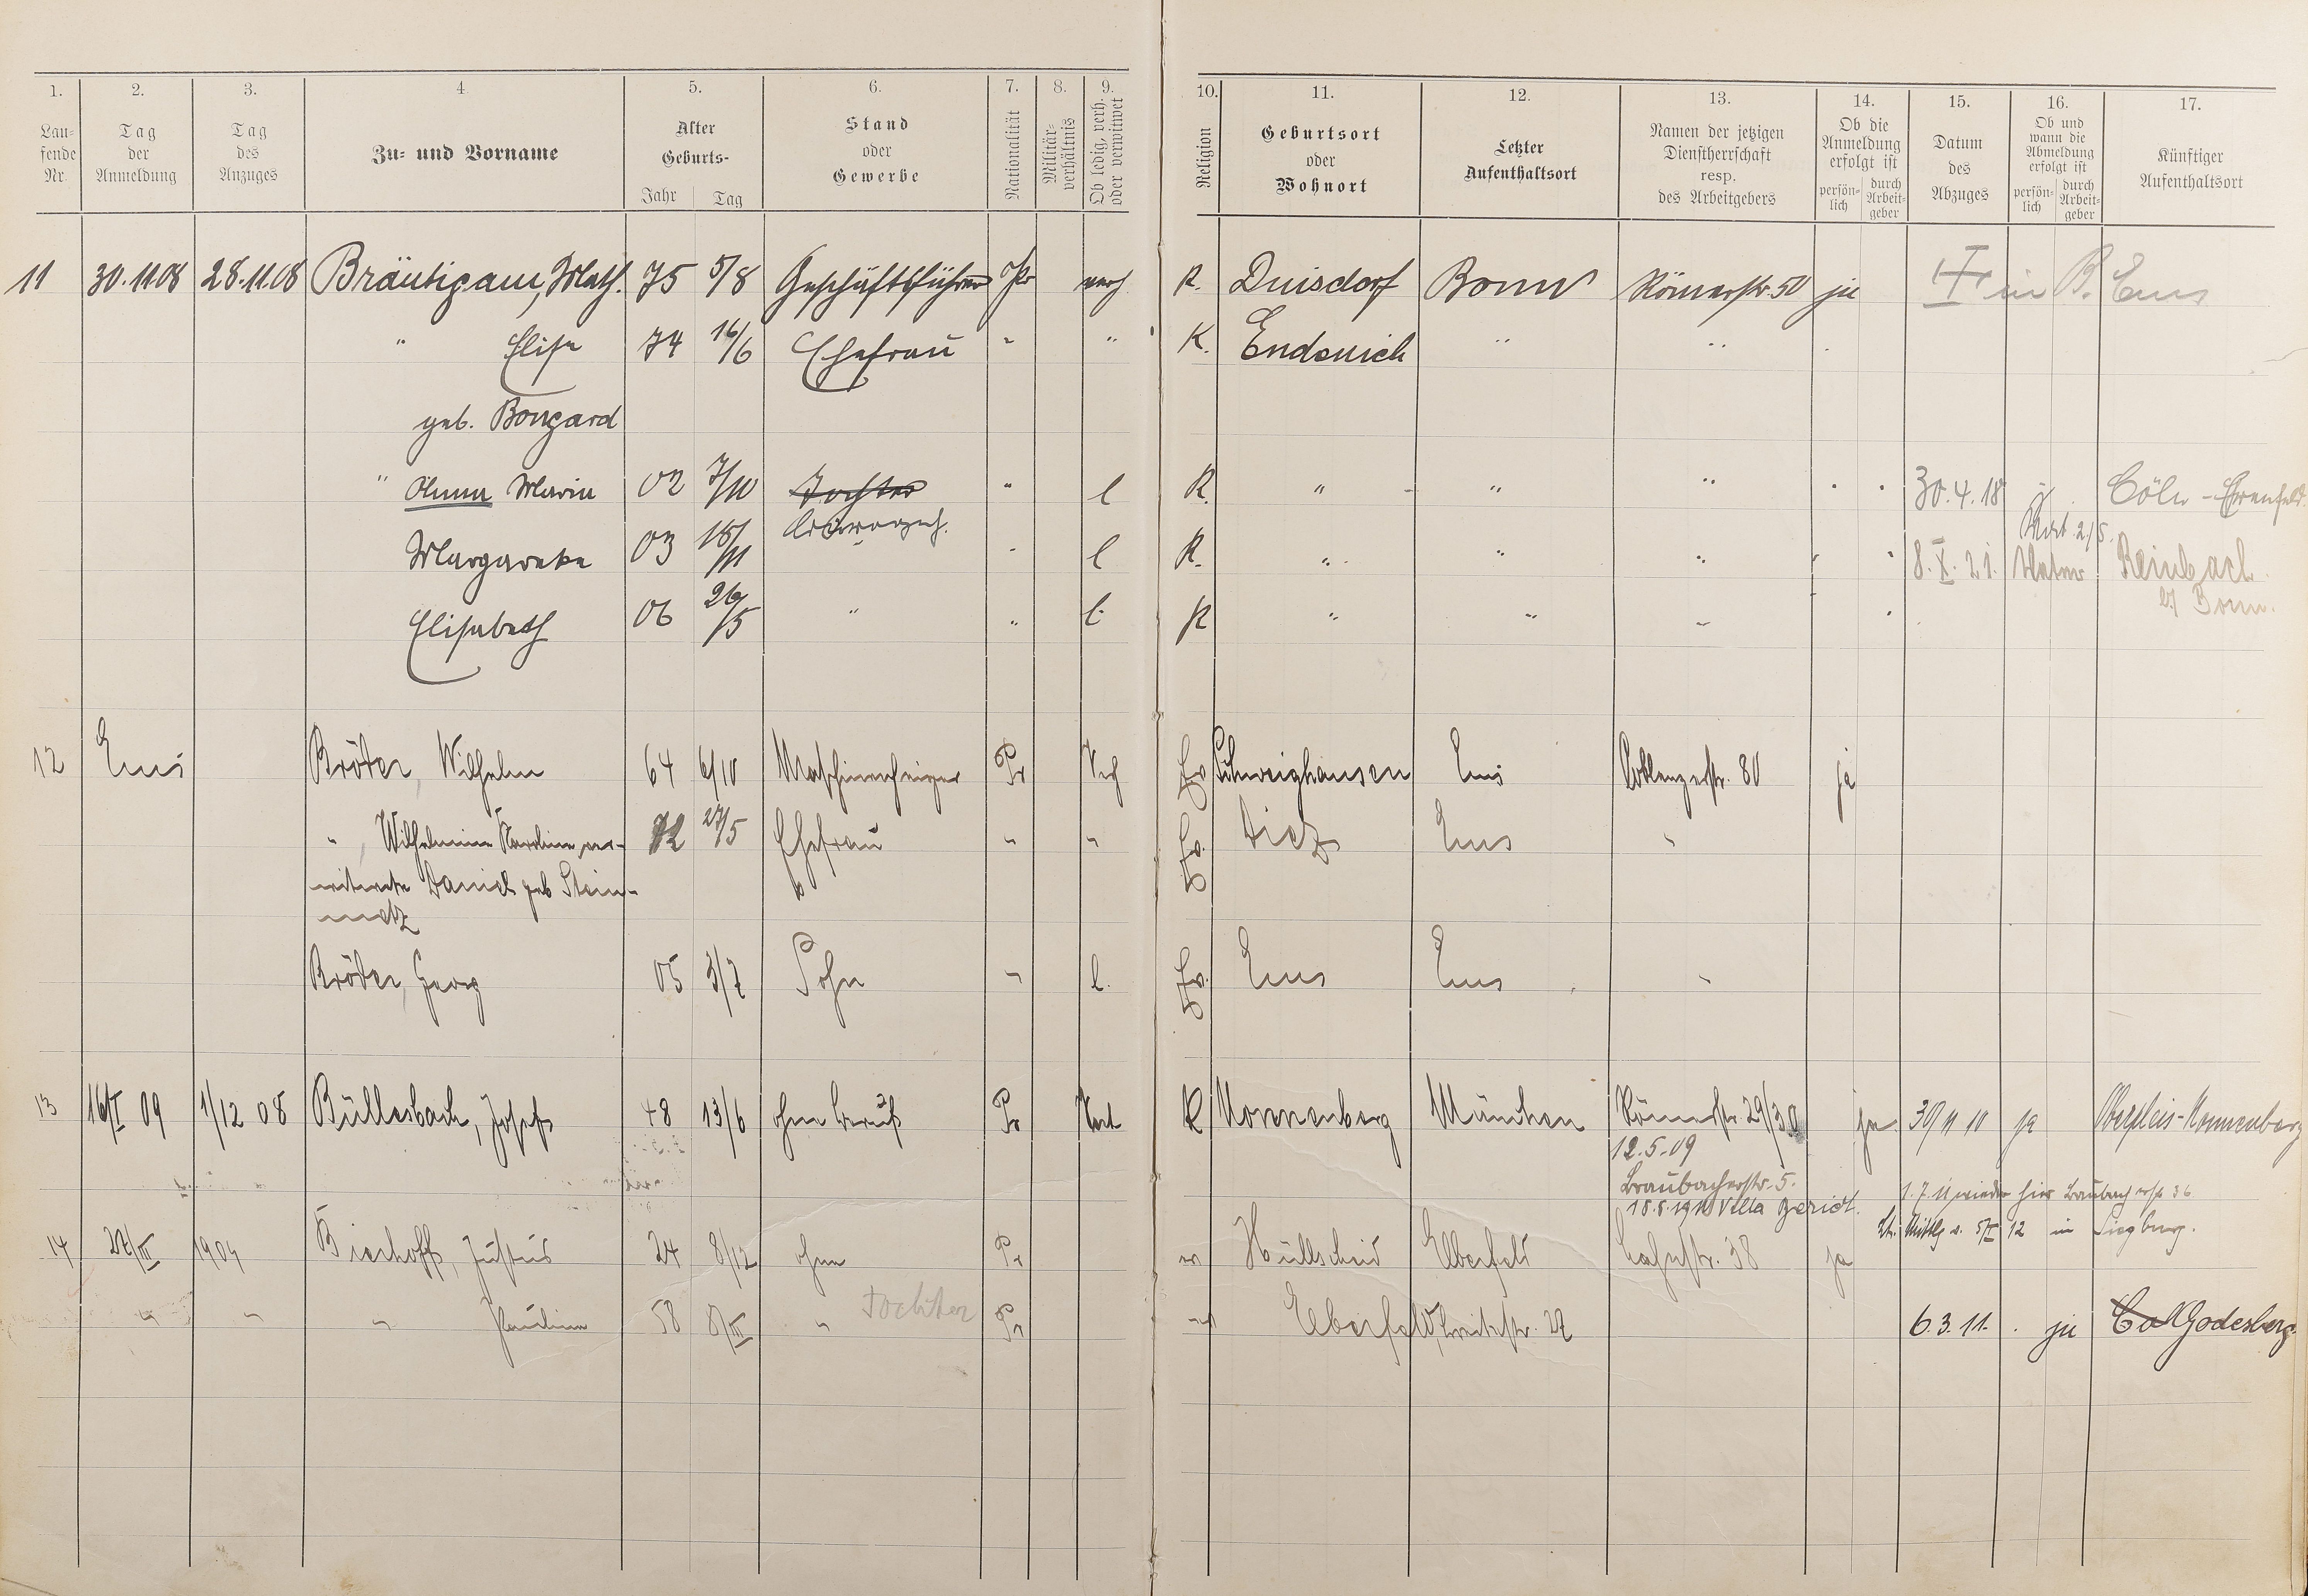 1. 2. 3. 4. 5. 6. 7. 8. 9. 10. 11. 12. 13. 14. 15. 16. 17.
Lau-
fende
Nr.
Tag
der
Anmeldung
Tag
des
Anzuges
Zu- und Vorname
Alter
Geburts-
Jahr Tag
Stand
oder
Gewerbe
Nationalität
Militär-
verhältnis
Ob ledig, verh.
oder verwitwet
Religion
Geburtsort
oder
Wohnort
Letzter
Aufenthaltsort
Namen der jetzigen
Dienstherrschaft
resp.
des Arbeitgebers
Ob die
Anmeldung
erfolgt ist
persön-
lich
durch
Arbeit-
geber
Datum
des
Abzuges
Ob und
wann die
Abmeldung
erfolgt ist
persön-
lich
durch
Arbeit-
geber
Künftiger
Aufenthaltsort
11 30.11.08 28.11.08 Bräutigam, Math. 75 5/8 Geschäftsführer Pr verh. K. Duisdorf Bonn Römerstr. 50 ja † in B. Ems
" Elise 74 16/6 Ehefrau " " K. Endenich " "
geb. Bongard
" Anna Maria 02 7/10 Tochter " l K. " " " 30.4.18 Cöln-Ehrenfeld
Margareta 03 18/11 " l K. " " " 8.X.21. Vater Reinbach
b/ Bonn.
Elisabeth 06 26/5 " " l. K " "
12 Ems Kröder, Wilhelm 64 6/10 Maschinenheizer Pr Verh Ev. Schweighausen Ems Coblenzerstr. 80 ja
" , Wilhelmine Karoline ver- 72 27/5 Ehefrau " " Ev. Diez Ems "
witwete Daniel geb Stein-
metz
Kröder, Georg 05 3/7 Sohn " l. Ev. Ems Ems "
13 16/I 09 1/12 08 Büllesbach, Josef 48 13/6 ohne Beruf Pr K Nonnenberg München Römerstr. 29/30 ja 30/11 10 ja Oberpleis-Nonnenberg
12.5.09
Braubacherstr. 5.
18.8.1910 Villa Bericht.
1.7.11 wieder hier Braubacherstr 36
Mittlg v. 5/II 12 in Siegburg.
14 27/III 1904 Bierhoff, Justus 24 8/12 ohne Pr Hüllscheid Elberfeld Lahnstr. 38 ja
" " " Pauline 58 8/III " Tochter Pr Elberfeld 6.3.11. ja Godesberg